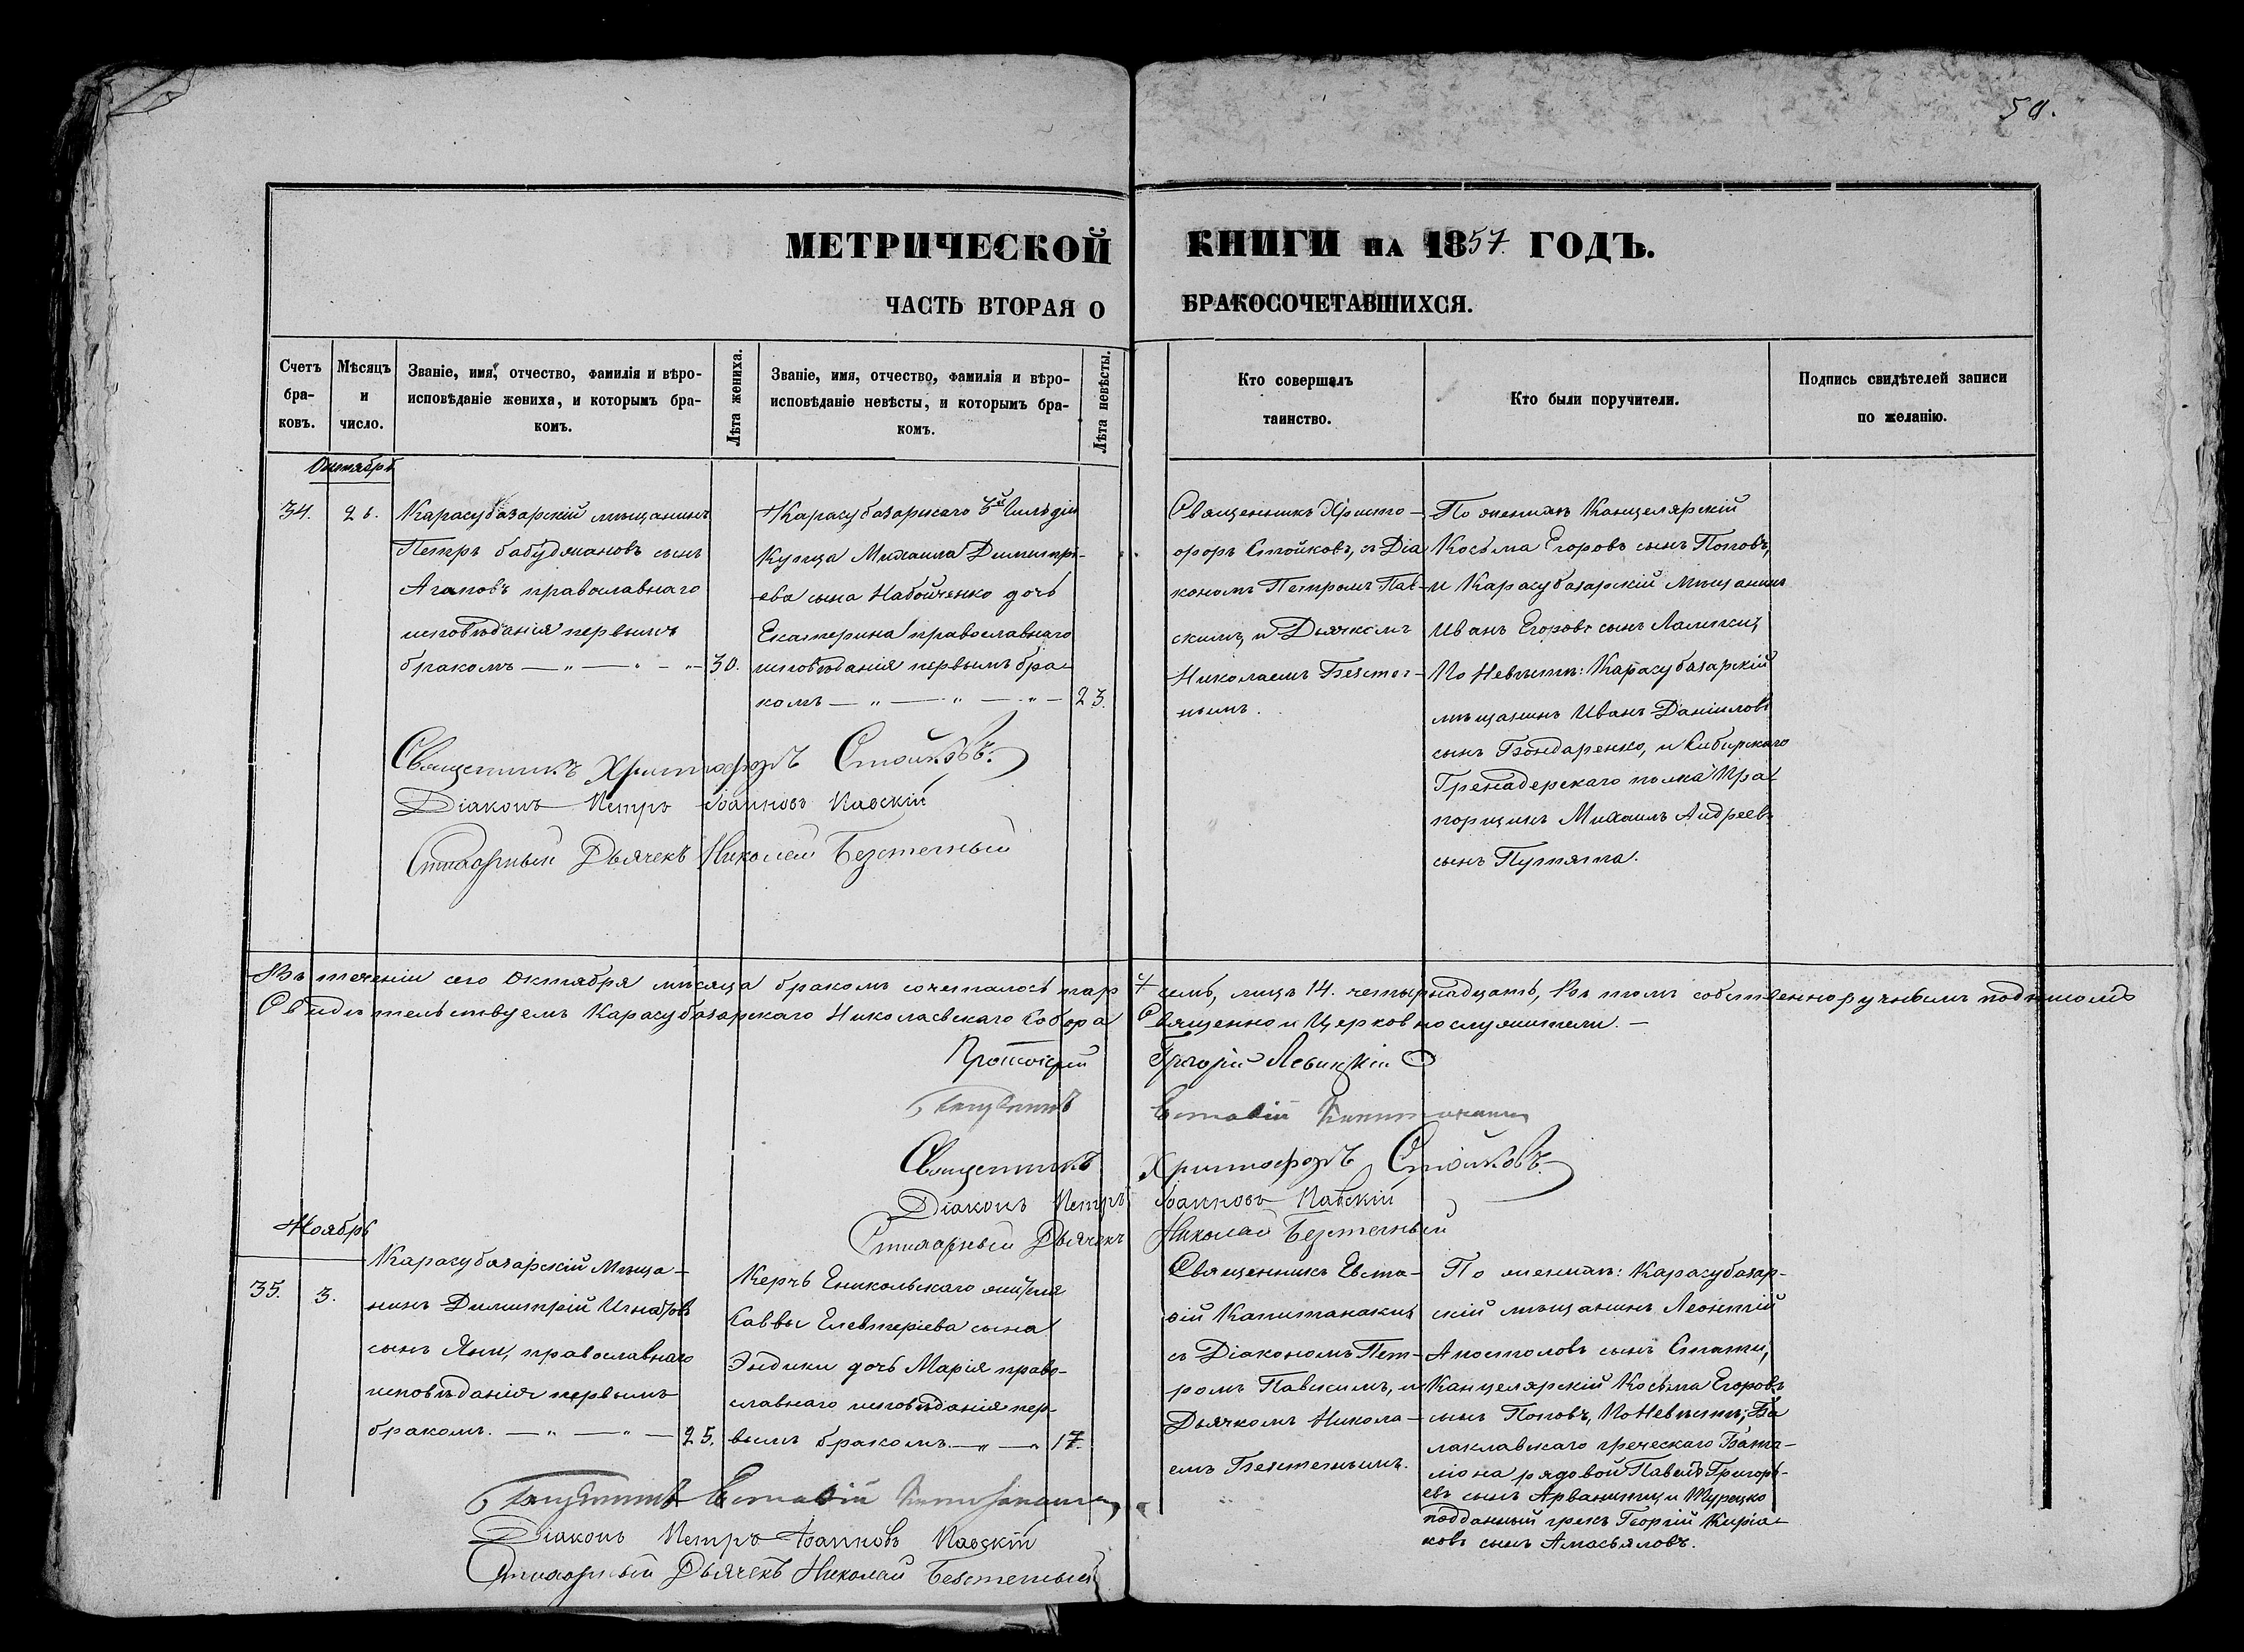 58.
МЕТРИЧЕСКОЙ КНИГИ НА 1857. ГОДЪ.
ЧАСТЬ ВТОРАЯ О БРАКОСОЧЕТАВШИХСЯ.
Счетъ
бра-
ковъ.
Мѣсяцъ
и
число.
Званіе, имя, отчество, фамилія и вѣро-
исповѣданіе жениха, и которымъ бра-
комъ.
Лѣта жениха.
Званіе, имя, отчество, фамилія и вѣро-
исповѣданіе невѣсты, и которымъ бра-
комъ.
Лѣта невѣсты.
Кто совершалъ
таинство.
Кто были поручители.
Подпись свидѣтелей записи
по желанію.
Октябрь
34.
26.
Карасубазарскій мѣщанинъ
Петръ сынъ
Агаповъ православнаго
исповѣданія первымъ
бракомъ — „ — „ — „ —
30.
Карасубазарскаго 3й Гильдіи
Купца Михаила Димитрі-
ева сына Набойченко дочь
Екатерина православнаго
исповѣданія первымъ бра-
комъ — „ — „ — „ —
23.
Священникъ Христо-
форъ Стойковъ, съ Діа
кономъ Петромъ Пав-
скимъ, и Дьячкомъ
Николаемъ Безстеч-
нымъ.
По женихѣ Канцелярскій
Косьма Егоровъ сынъ Поповъ,
и Карасубазарскій Мѣщанинъ
Иванъ Егоровъ сынъ
По Невѣстѣ: Карасубазарскій
мѣщанинъ Иванъ Даніиловъ
сынъ Бондаренко, и Сибирскаго
Гренадерскаго полка Пра-
порщикъ Михаилъ Андреевъ
сынъ Путята.
Священникъ Христофоръ Стойковъ.
Діаконъ Петръ Іоанновъ Павскій
Стихарный Дьячекъ Николай Безстечный
Въ теченіи сего Октября мѣсяца бракомъ сочеталось паръ 7 семь, лицъ 14. четырнадцать, Въ томъ собственноручнымъ подписомъ
Свидѣтельствуемъ Карасубазарскаго Николаевскаго Собора Священно и Церковнослужители. —
Протоіерей Григорій Левицкій
Священникъ Евставій Капитанаки
Священникъ Христофоръ Стойковъ.
Діаконъ Петръ Іоанновъ Павскій
Стихарный Дьячекъ Николай Безстечный
Ноябрь
35.
3.
Карасубазарскій Мѣща-
нинъ Димитрій Игнатовъ
сынъ Яни, православнаго
исповѣданія первымъ
бракомъ. — „ — „ —
25.
Керчь Еникольскаго жителя
Саввы Елевтеріева сына
Эндики дочь Марія право-
славнаго исповѣданія пер-
вымъ бракомъ. — „ — „
17.
Священникъ Евста-
вій Капитанаки,
съ Діакономъ Пет-
ромъ Павскимъ, и
Дьячкомъ Никола-
емъ Безстечнымъ.
По женихѣ: Карасубазар-
скій мѣщанинъ Леонтій
Апостоловъ сынъ Стати,
Канцелярскій Косьма Егоровъ
сынъ Поповъ, По Невѣстѣ; Ба
лаклавскаго греческаго Бата-
ліона рядовой Павелъ Григорь-
евъ сынъ и Турецко
подданный грекъ Георгій Киріа-
ковъ сынъ Амасьяловъ.
Священникъ Евставій Капитанаки
Діаконъ Петръ Іоанновъ Павскій
Стихарный Дьячекъ Николай Безстечный